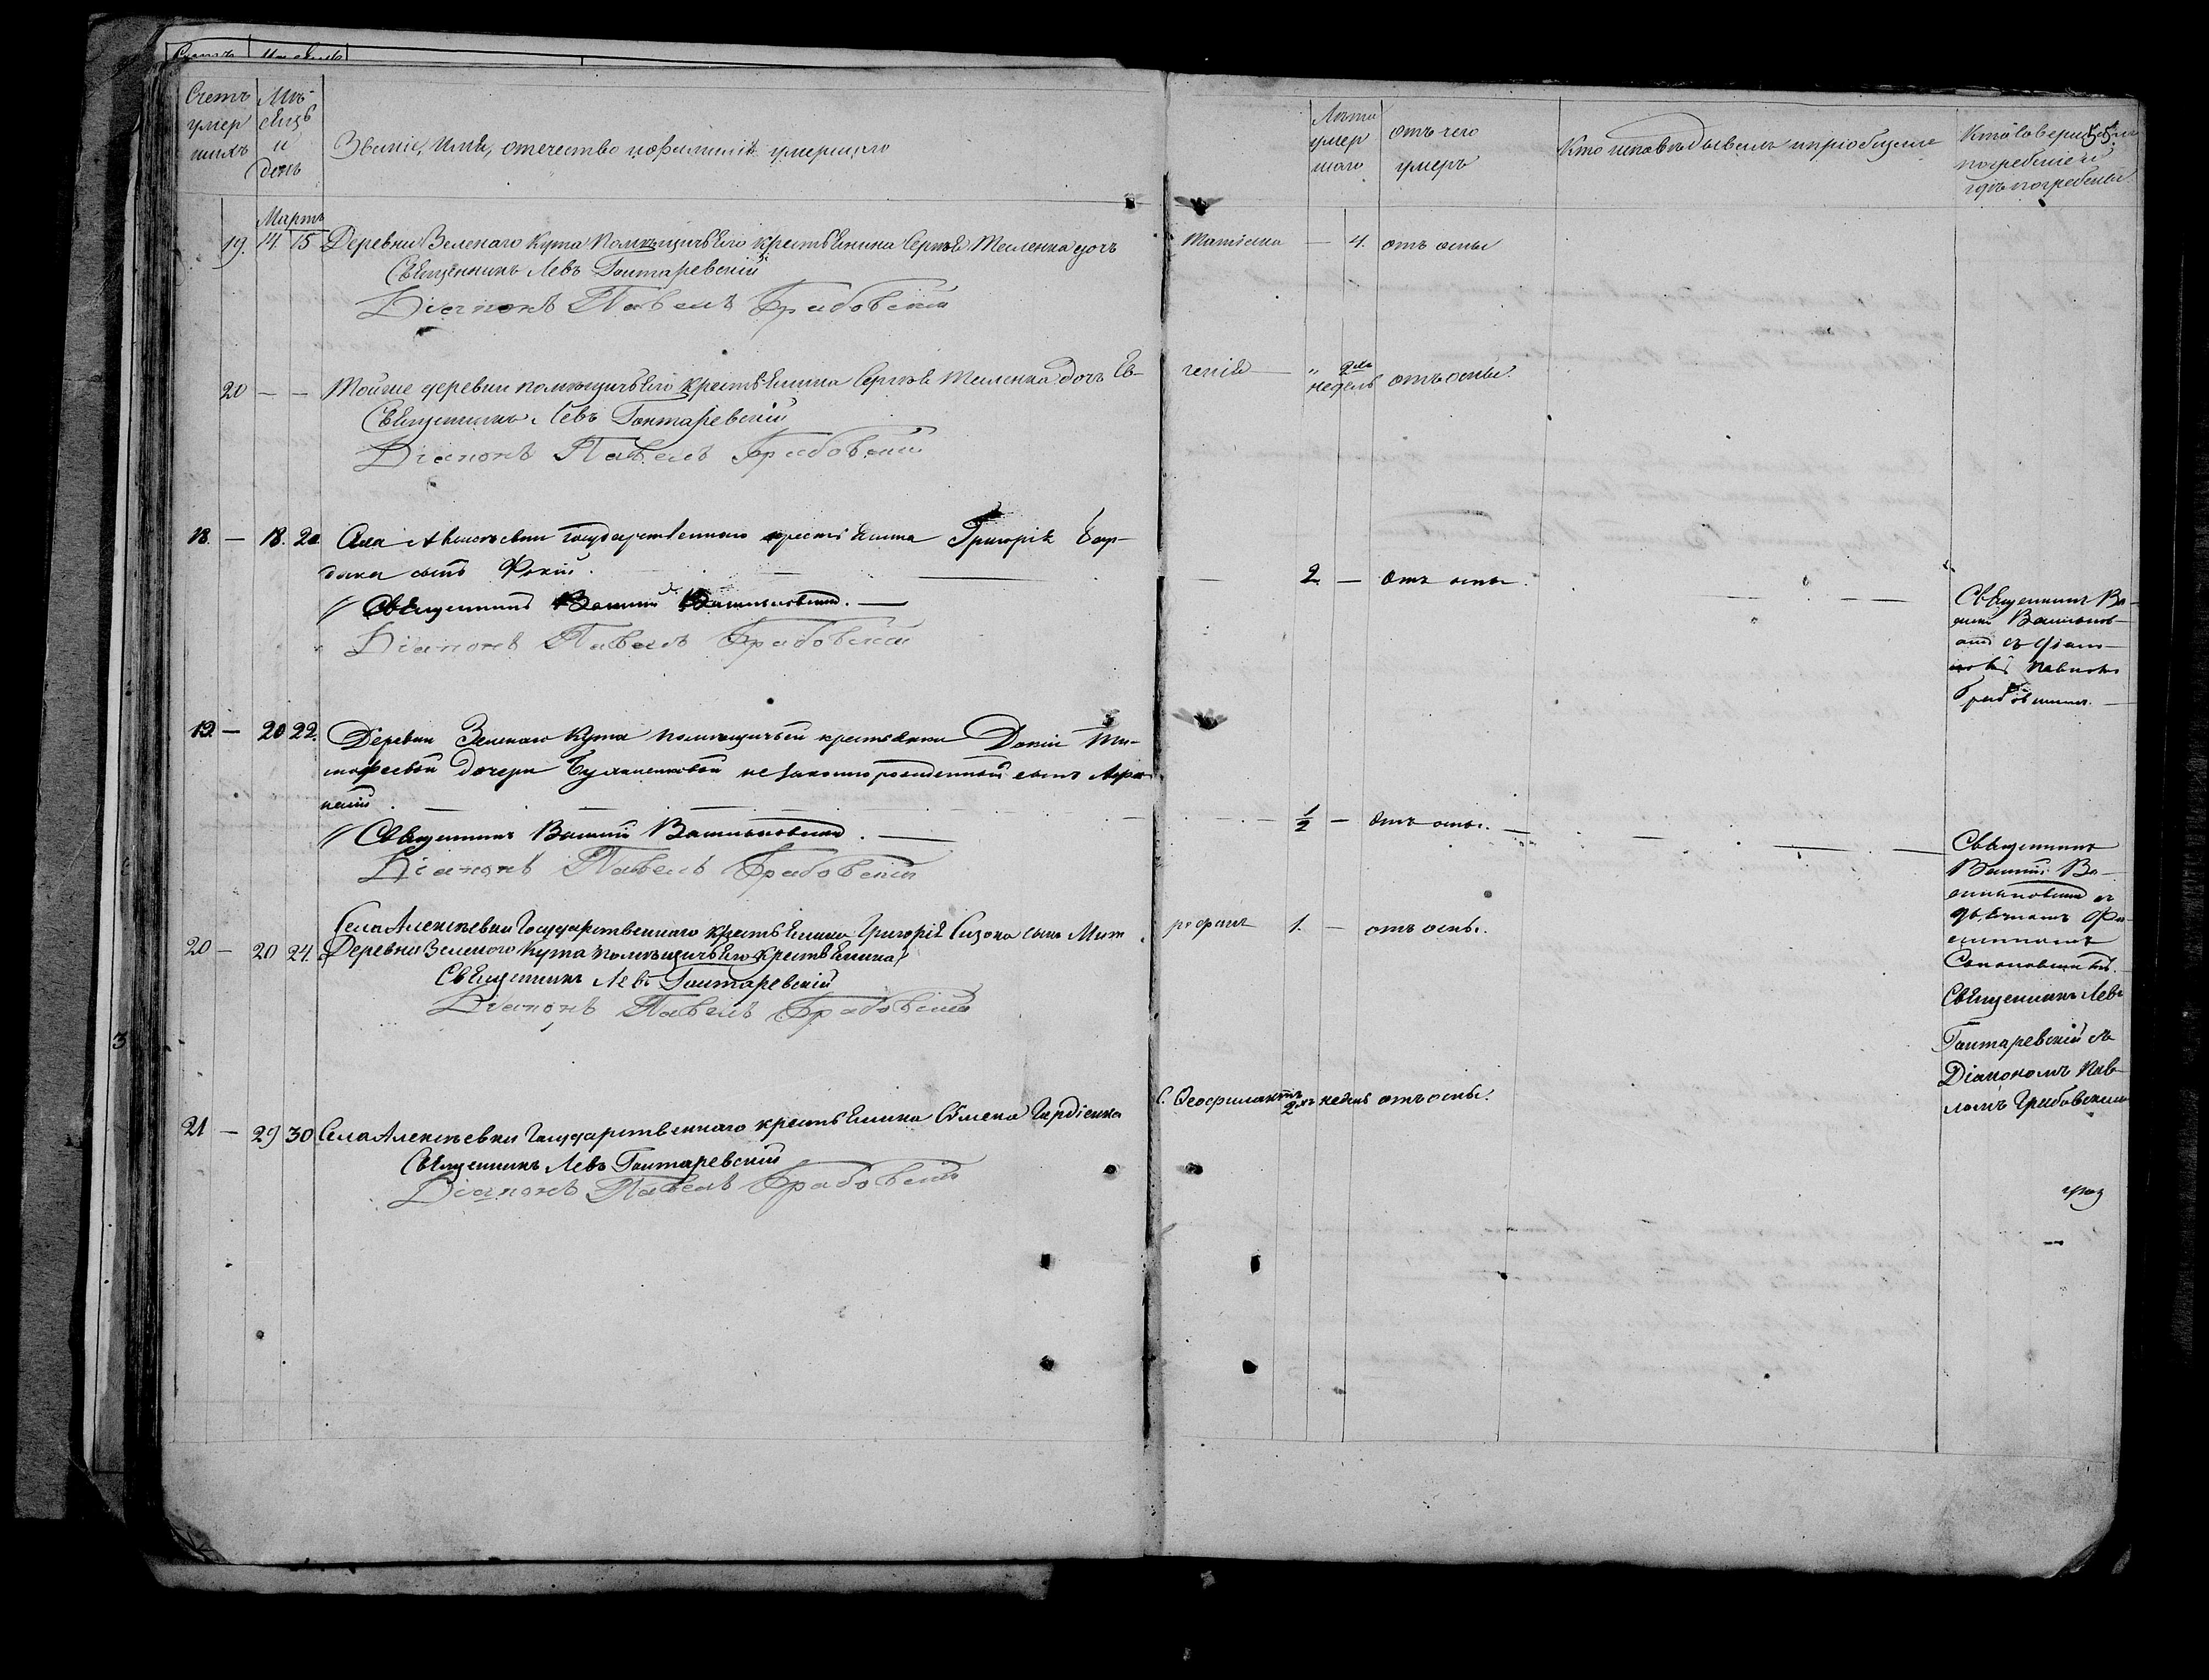 Счетъ умер шихъ
Мѣ- сяцъ и день
Званіе, имя, отечество и фамилія умершаго
Лѣта умер шаго
отъ чего умеръ
Кто исповѣдывалъ и пріобщалъ
Кто совершалъ погребеніе и гдѣ погребены
55.
Мартъ
19. 14. 15 Деревни Зеленаго Кута помѣщичьяго крестьянина Сергѣя Теленка дочь Матрона — 4. отъ оспы
Священникъ Левъ Гонтаревскій
Діаконъ Павелъ Грабовскій
20 — — Той же деревни помѣщичьяго крестьянина Сергѣя Теленка дочь Ев-генія — " недѣль отъ оспы.
Священникъ Левъ Гонтаревскій
Діаконъ Павелъ Грабовскій
18 — 18. 20 Села Алексѣевки государственнаго крестьянина Григорія
сынъ Фокій. — 2 — отъ оспы.
Священникъ Василій Васильковскій.
Діаконъ Павелъ Грабовскій
Священникъ Ва-
силій Васильков-
скій съ Діако-
номъ Павломъ
Грабовскимъ.
19 — 20 22. Деревни Зеленаго Кута помѣщичьей крестьянки Докіи Ти-
мофеевой дочери незаконнорожденный сынъ Афа-
насій
1/2 — отъ оспы.
Священникъ Василій Васильковскій.
Діаконъ Павелъ Грабовскій
Священникъ
Василій Ва-
сильковскій съ
дьячкомъ
Села Алексѣевки Государственнаго крестьянина Григорія Сизона сынъ Мит рофанъ 1. — отъ оспы.
20 — 20 24. Деревни Зеленого Кута помѣщичьяго крестьянина
Священникъ Левъ Гонтаревскій
Діаконъ Павелъ Грабовскій
Священникъ Левъ
Гонтаревскій съ
Діакономъ Пав-
ломъ Грабовскимъ
21 — 29 30 Села Алексѣевки Государственнаго крестьянина Семена Гордіенка С. Феофилактъ 2хъ недѣль отъ оспы.
Священникъ Левъ Гонтаревскій
Діаконъ Павелъ Грабовскій
3